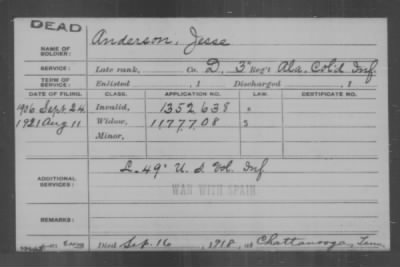 DEAD
NAME OF SOLDIER: Anderson, Jesse
SERVICE: Late rank, Co. D, 3" Reg't Ala. Col'd Inf.
TERM OF SERVICE: Enlisted , 1 Discharged , 1
DATE OF FILING. CLASS. APPLICATION NO. CERTIFICATE NO.
1906 Sept. 24 Invalid, 1352638
1921 Aug 11 Widow, 1177708 S
Minor,
ADDITIONAL SERVICES: L. 49" U. S. Vol. Inf
WAR WITH SPAIN
REMARKS:
Died Sep. 16, 1918, at Chattanooga, Tenn.